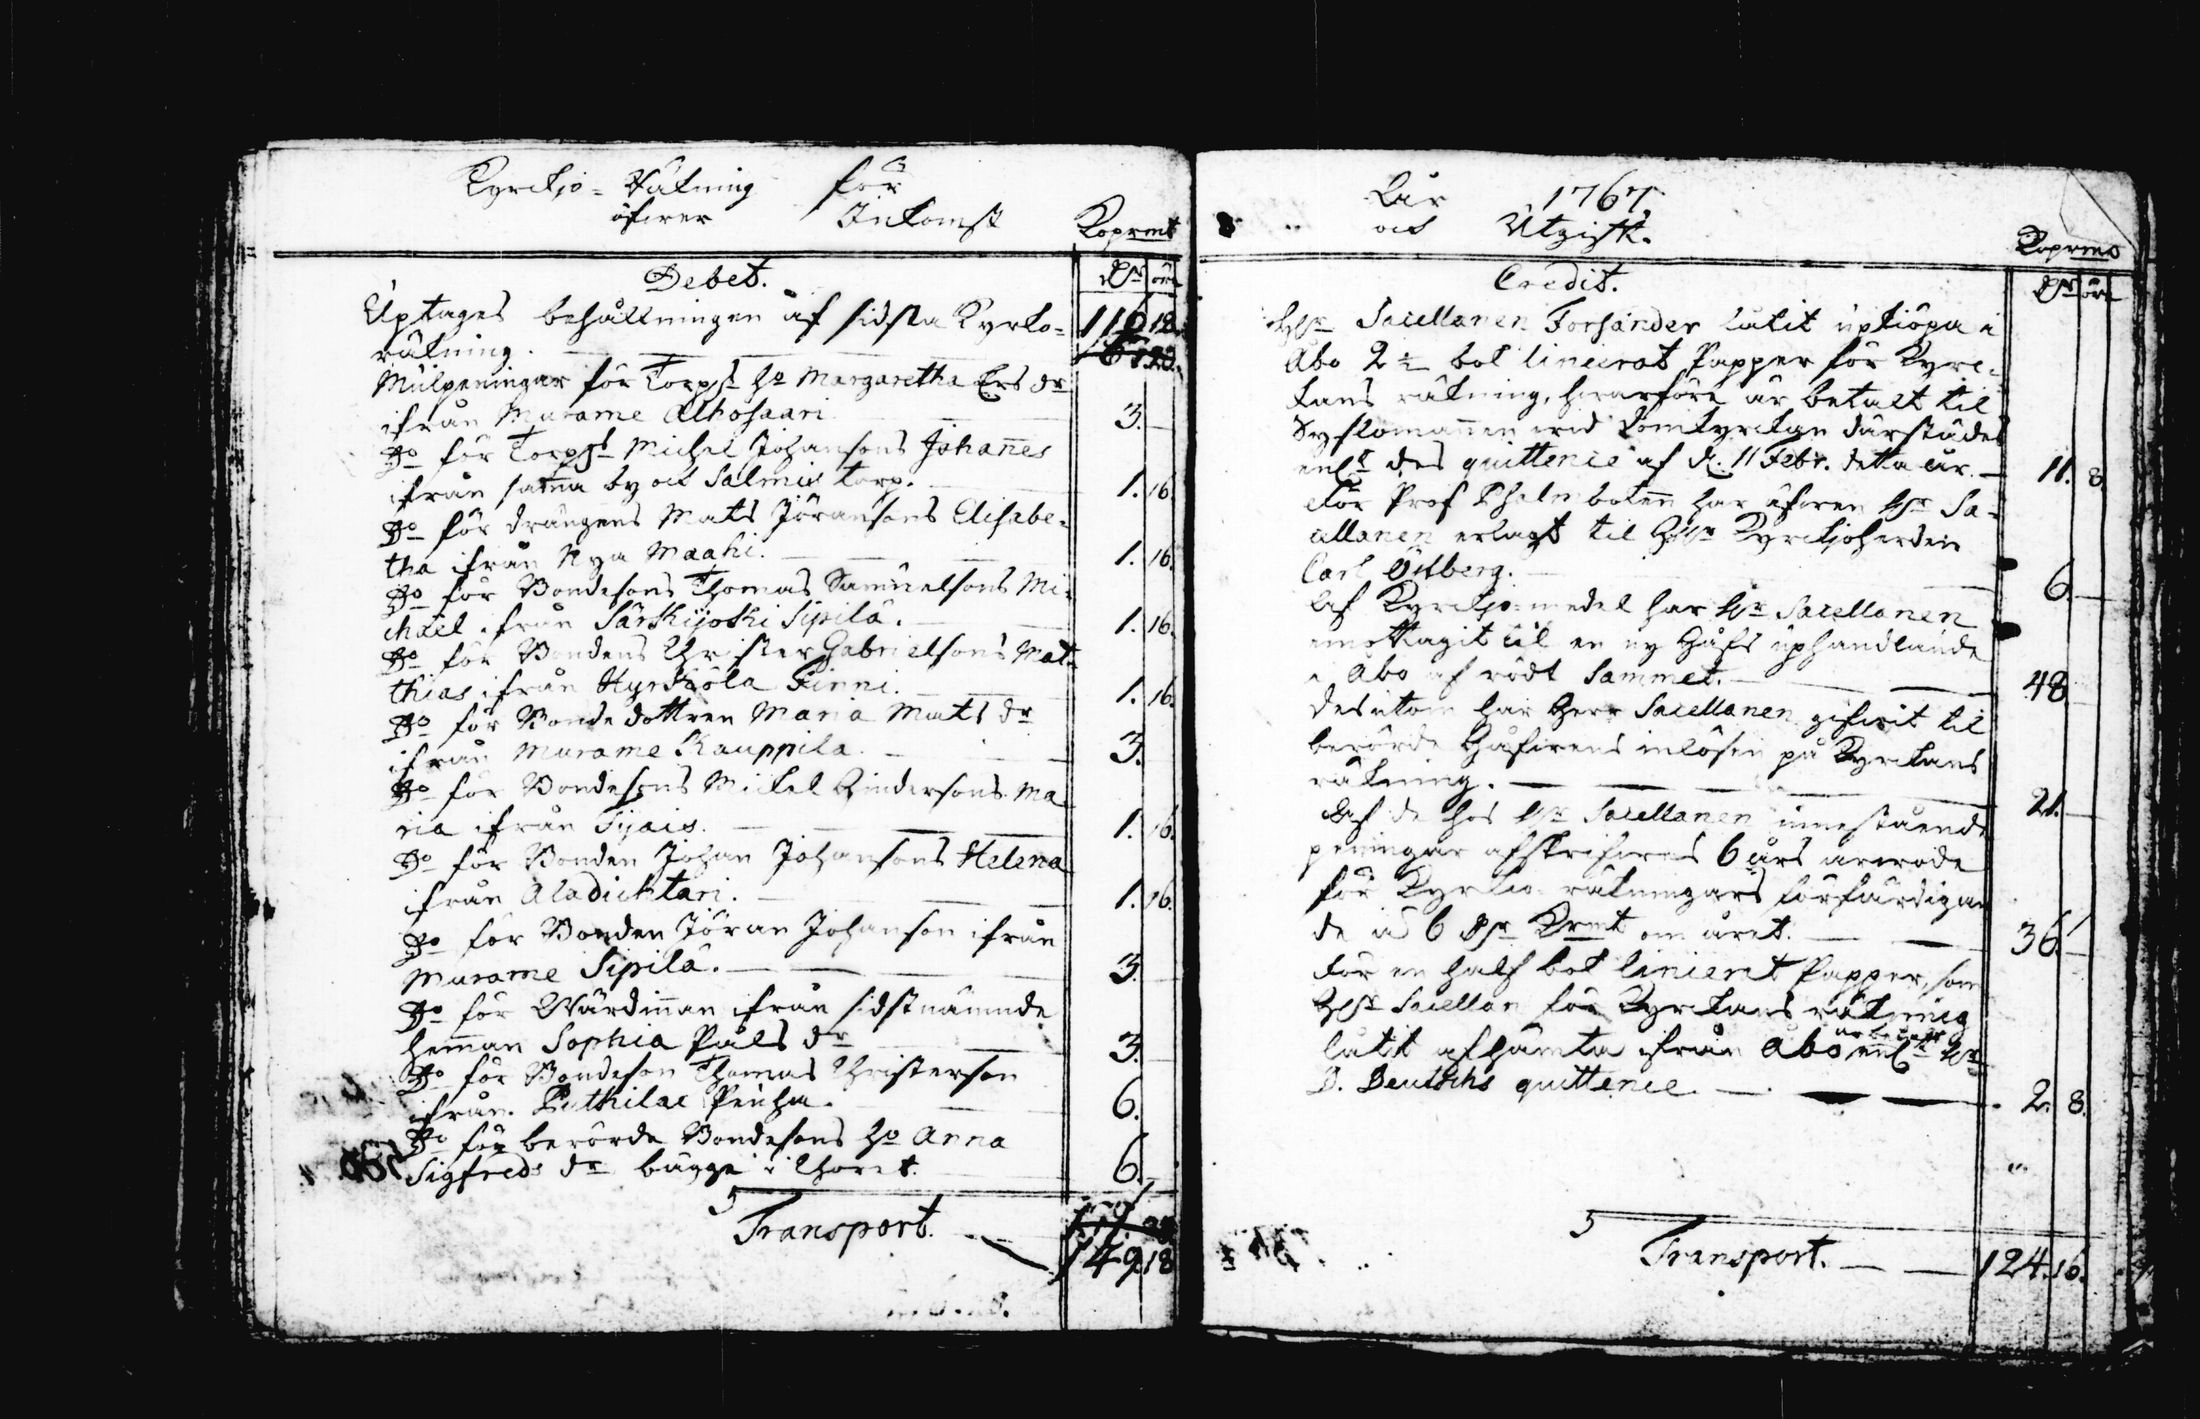 Kyrckjo-Räkning för
öfwer Inkomst
Kopmt
Debet.
Dr öre
Uptages behållningen af sidsta Kyrko-
räkning. 116 12.
Mulpeningar för Torpst ho Margaretha Ers dr
ifrån Murame Alhosaari 3.
Do för Torpst Michel Johansons Johannes
ifrån samma by och Salmis torp. 1. 16.
Do för drängens Mats Jöransons Elisabe-
tha ifrån Nya Maahi. 1. 16.
Do för Bondesons Thomas Samuelsons Mi-
chael ifrån Särkijoki Sipilä. 1. 16.
Do för Bondens Christer Gabrielsons Mat-
thias ifrån Hyrköla Finni. 1. 16.
Do för Bonde dottren Maria Mats dr
ifrån Murame Kauppila. 3.
Do för Bondesons Mickel Andersons Ma-
ria ifrån Sijais. 1. 16.
Do för Bonden Johan Johansons Helena
ifrån Aladichtari. 1. 16.
Do för Bonden Jöran Johanson ifrån
Murame Sipilä. 3.
Do för Wärdinnan ifrån sidstnämnde
hemman Sophia Påls dr 3.
Do för Bondeson Thomas Christerson
ifrån 6.
Do för berörde Bondesons ho Anna
Sigfreds dr bägge i Choret. 6.
Transport. 149 18
Åhr 1767.
och Utgift.
Kopmt
Credit.
Dr öre
Hr Sacellanen Forsander låtit upköpa i
Åbo 2 ½ bok linierat Papper för Kyrc-
kans räkning, hwarföre är betalt til
Sysslomannen wid Domkyrckan därstädes
enlt des quittence af d. 11 Febr. detta åhr. 11. 8.
För Prof Psalmboken har äfwen Hr Sa-
cellanen erlagt til Hr Kyrckjoherden
Carl 6.
Af Kyrckjo-medel har Hr Sacellanen
emottagit til en ny Håfs uphandlande
i Åbo af rödt Sammet. 48
Desutom har Herr Sacellanen gifwit til
berörde Håfwens inlösen på Kyrckans
räkning. 21.
Af de hos Hr Sacellanen innestående
peningar afskrifwes 6 års arwode
för Kyrkio-räkningars förfärdigan-
de à 6 Dr Kmt om året. 36.
För en half bok linierat Papper, som
Hr Sacellan för Kyrkans räkning
låtit afhämta ifrån Åbo är betalt enlt Hr
D. Deutschs quittence. 2. 8.
Transport. 124. 16.